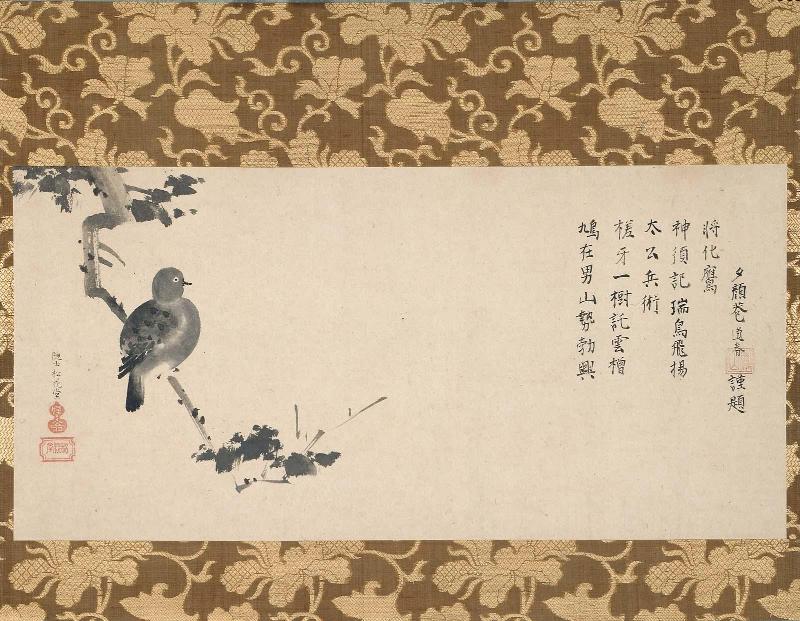 鳩在男山勢勃興
槎牙一樹託雲橧
太公兵術
神須記瑞鳥飛揚
將化鷹
夕顔巷道春謹題
隠士松花堂